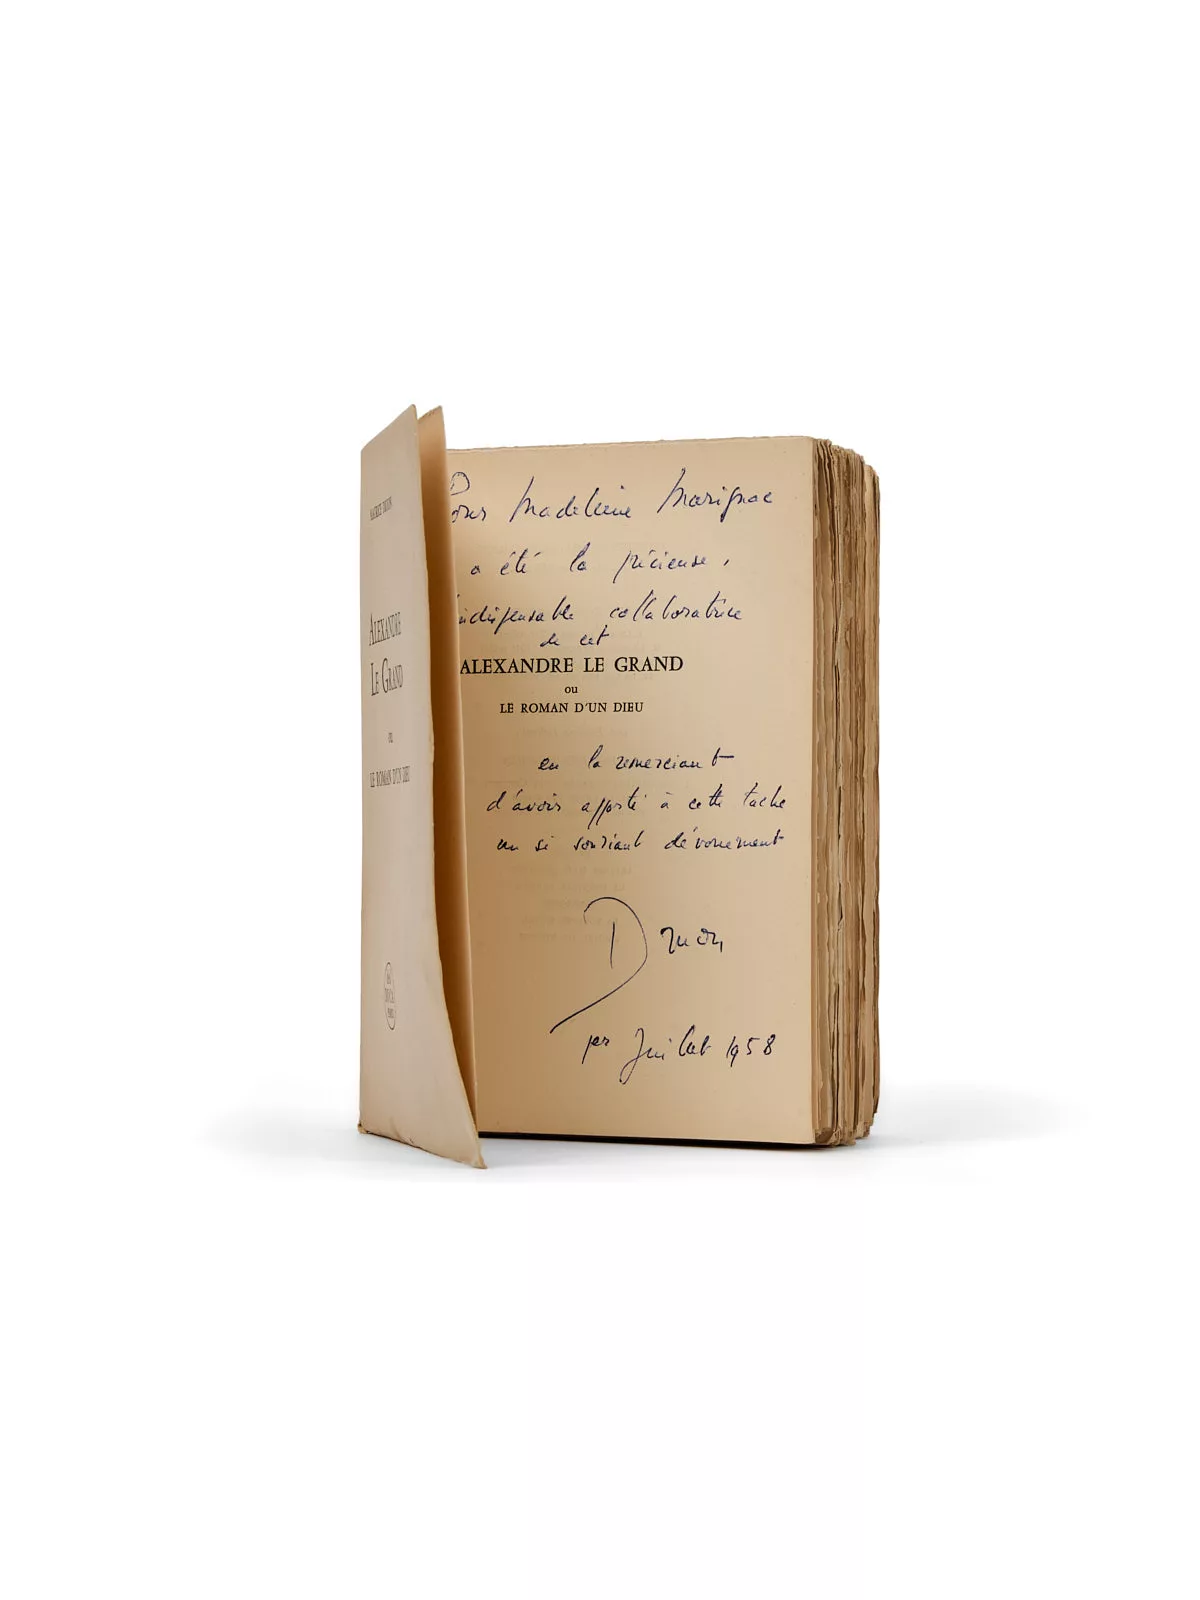 MAURICE DRUON
ALEXANDRE
LE GRAND
ou
LE ROMAN D'UN DIEU
Pour Madeleine Marignac
a été la précieuse,
indispensable collaboratrice
de cet
ALEXANDRE LE GRAND
ou
LE ROMAN D'UN DIEU
en la remerciant
d'avoir apporté à cette tache
un si souriant dévouement
Druon
1er Juillet 1958